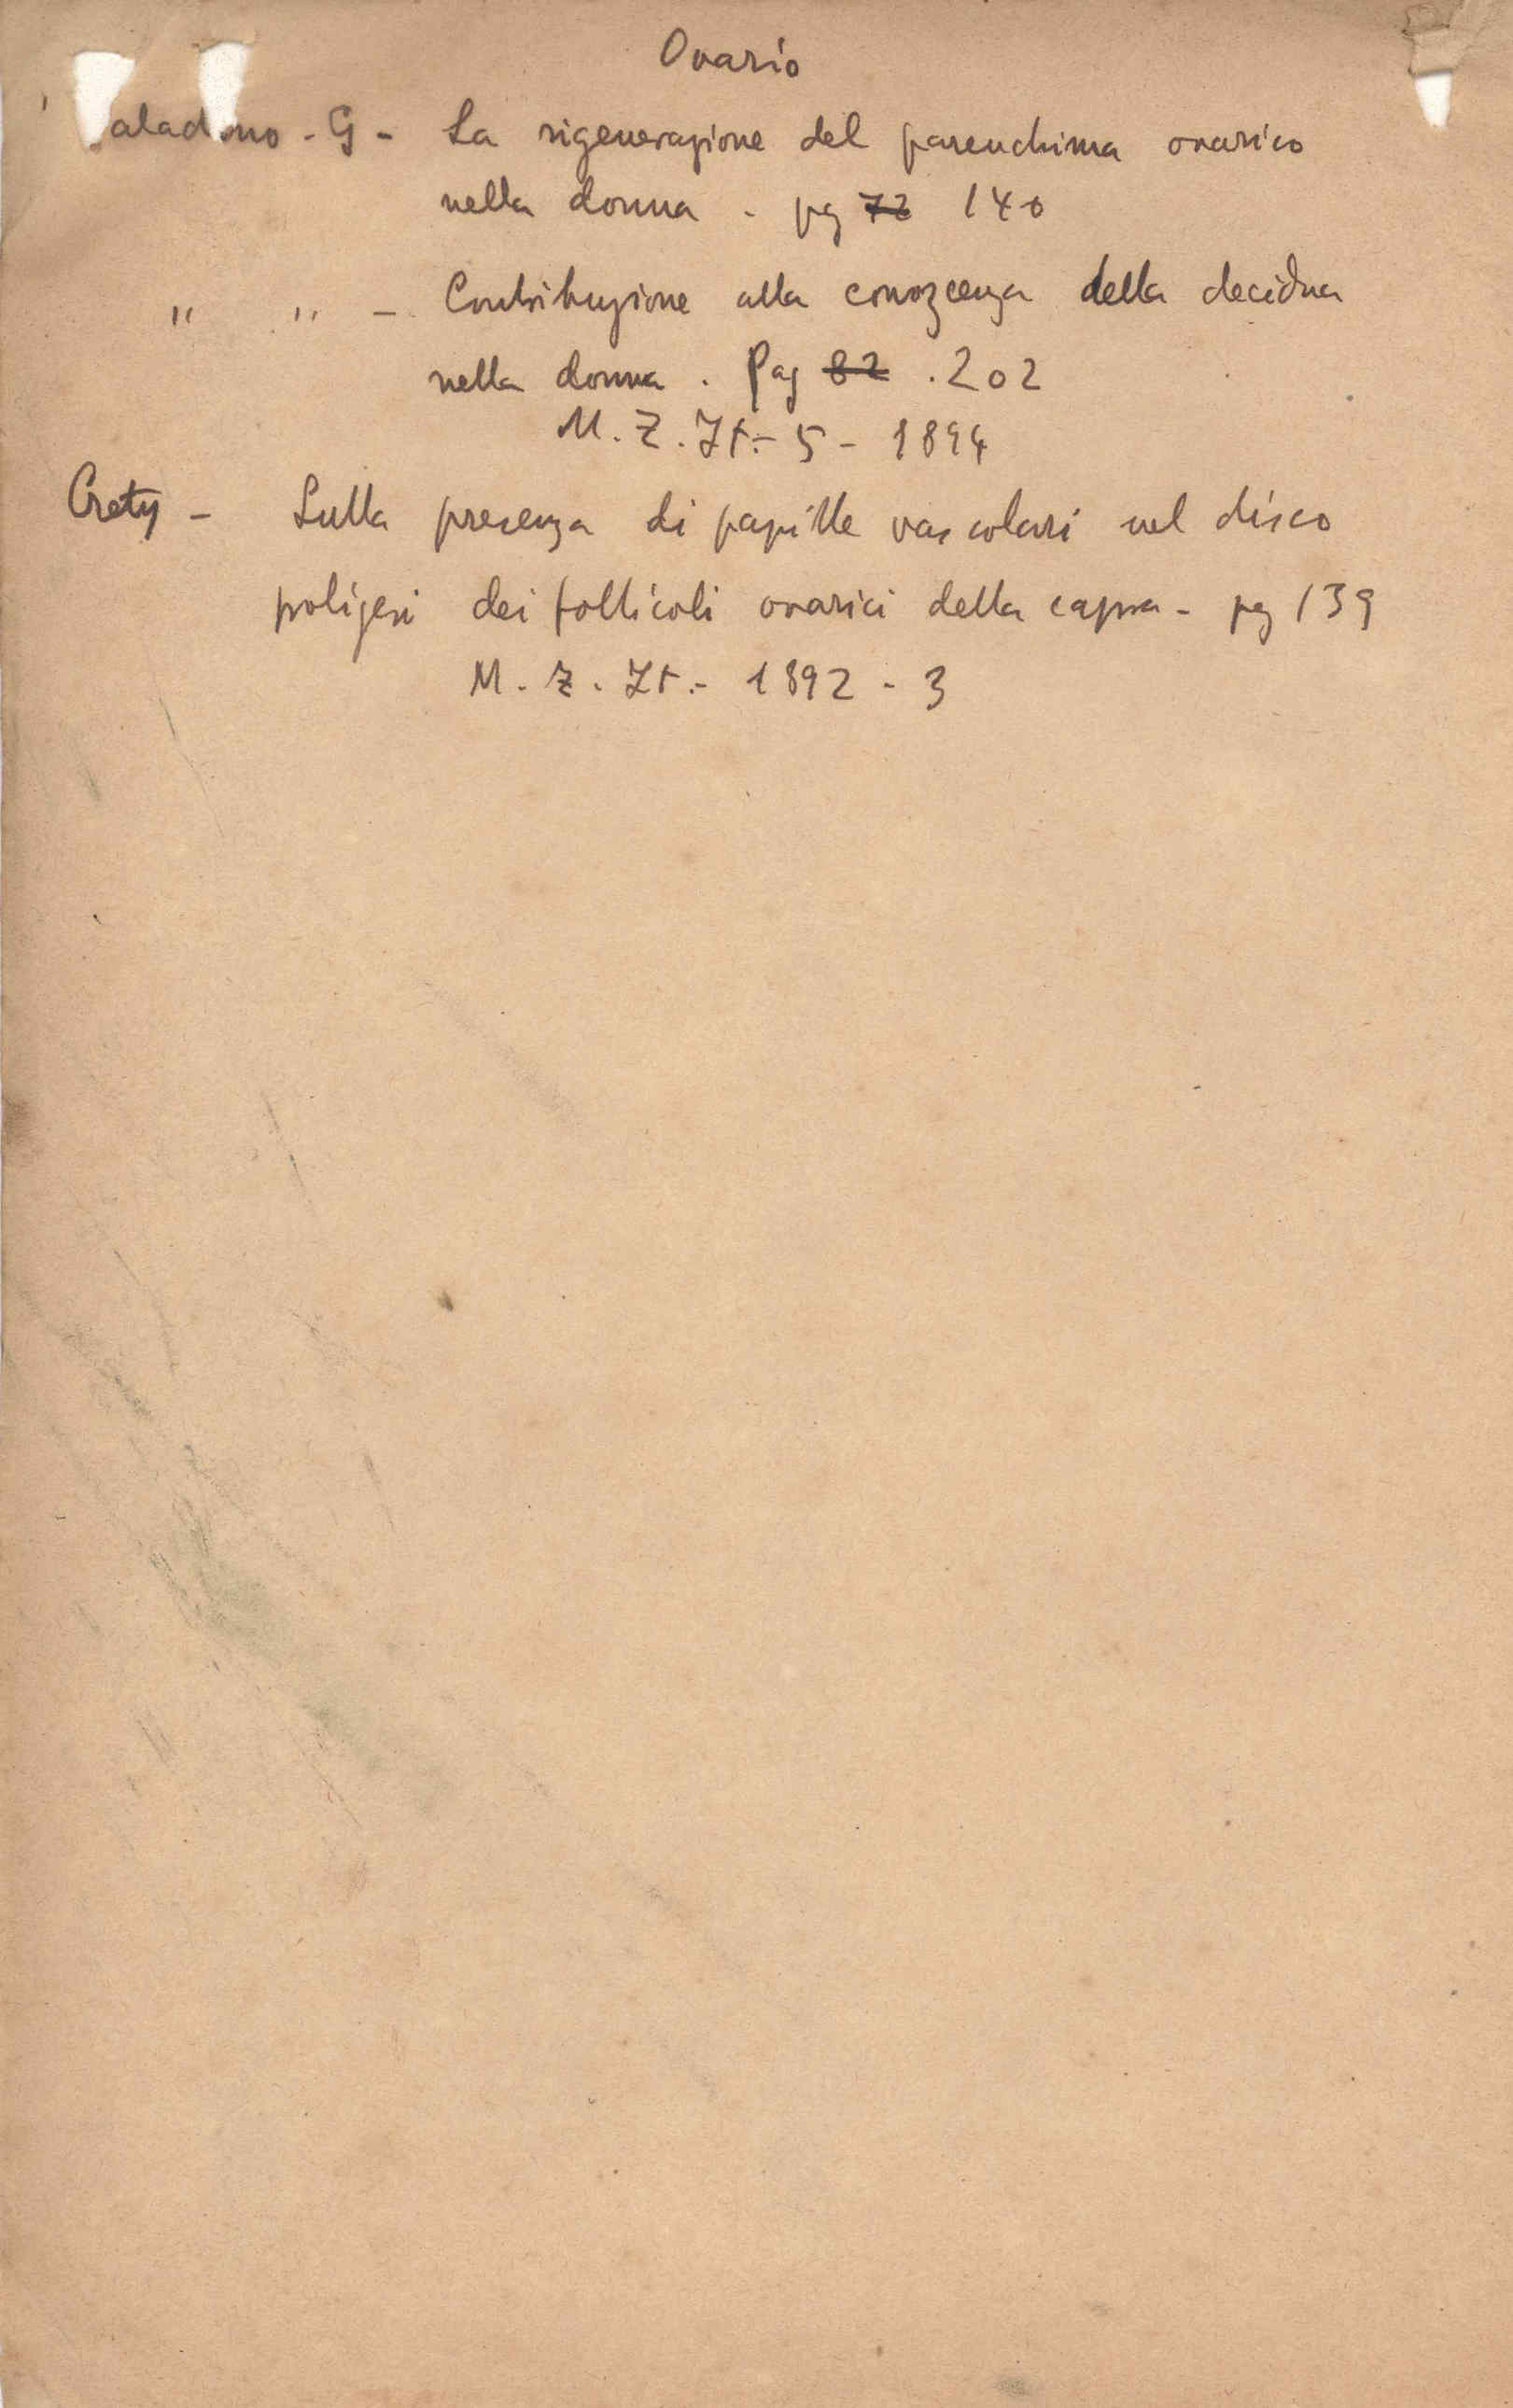 Ovario
aladino - G - La rigenerazione del parenchima ovarico
nella donna - pg 72 140
" " - Contribuzione alla conozcenza della decidua
nella donna . Pag 82 . 202
M. Z. It. - 5 - 1894
Crety - Sulla presenza di papille vascolari nel disco
poligeri dei follicoli ovarici della capra - pg 139
M. Z. It. - 1892 - 3